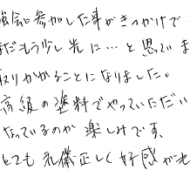 強会に参加した事がきっかけで
まだもう少し先に…と思っていま
取りかかることになりました。
高級の塗料でやっていただい
なっているのが楽しみです。
とても礼儀正しく好感がも